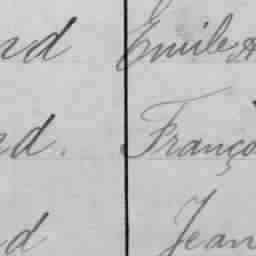 nd Emile A
nd. Franço
nd Jean